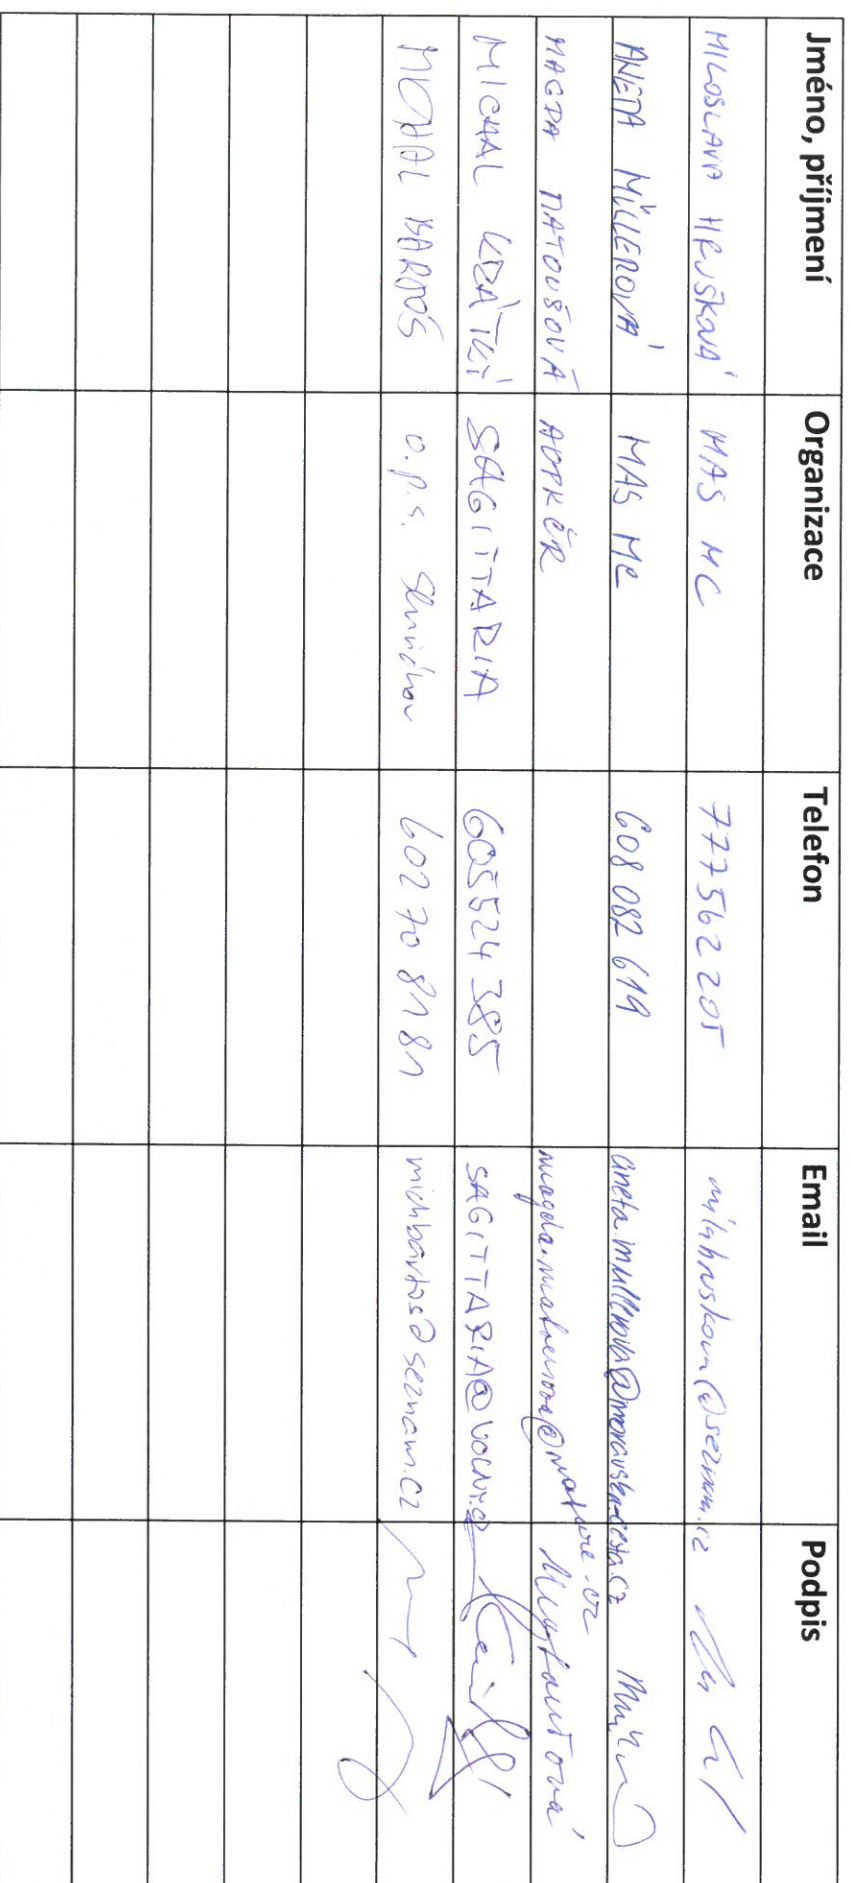 Jméno, příjmení Organizace Telefon Email Podpis
MILOSLAVA HRUŠKOVÁ MAS MC 777562205 milahruskova@seznam.cz
ANETA MÜLLEROVÁ MAS MC 608 082 619 aneta.mullerova@moravska-cesta.cz
MAGDA MATOUŠOVÁ AOPK ČR magda.matousova@nature.cz Matoušová
MICHAL KRÁTKÝ SAGITTARIA 605524385 SAGITTARIA@volny.cz
MICHAL BARTOŠ o.p.s. 602 70 81 81 michbartos@seznam.cz